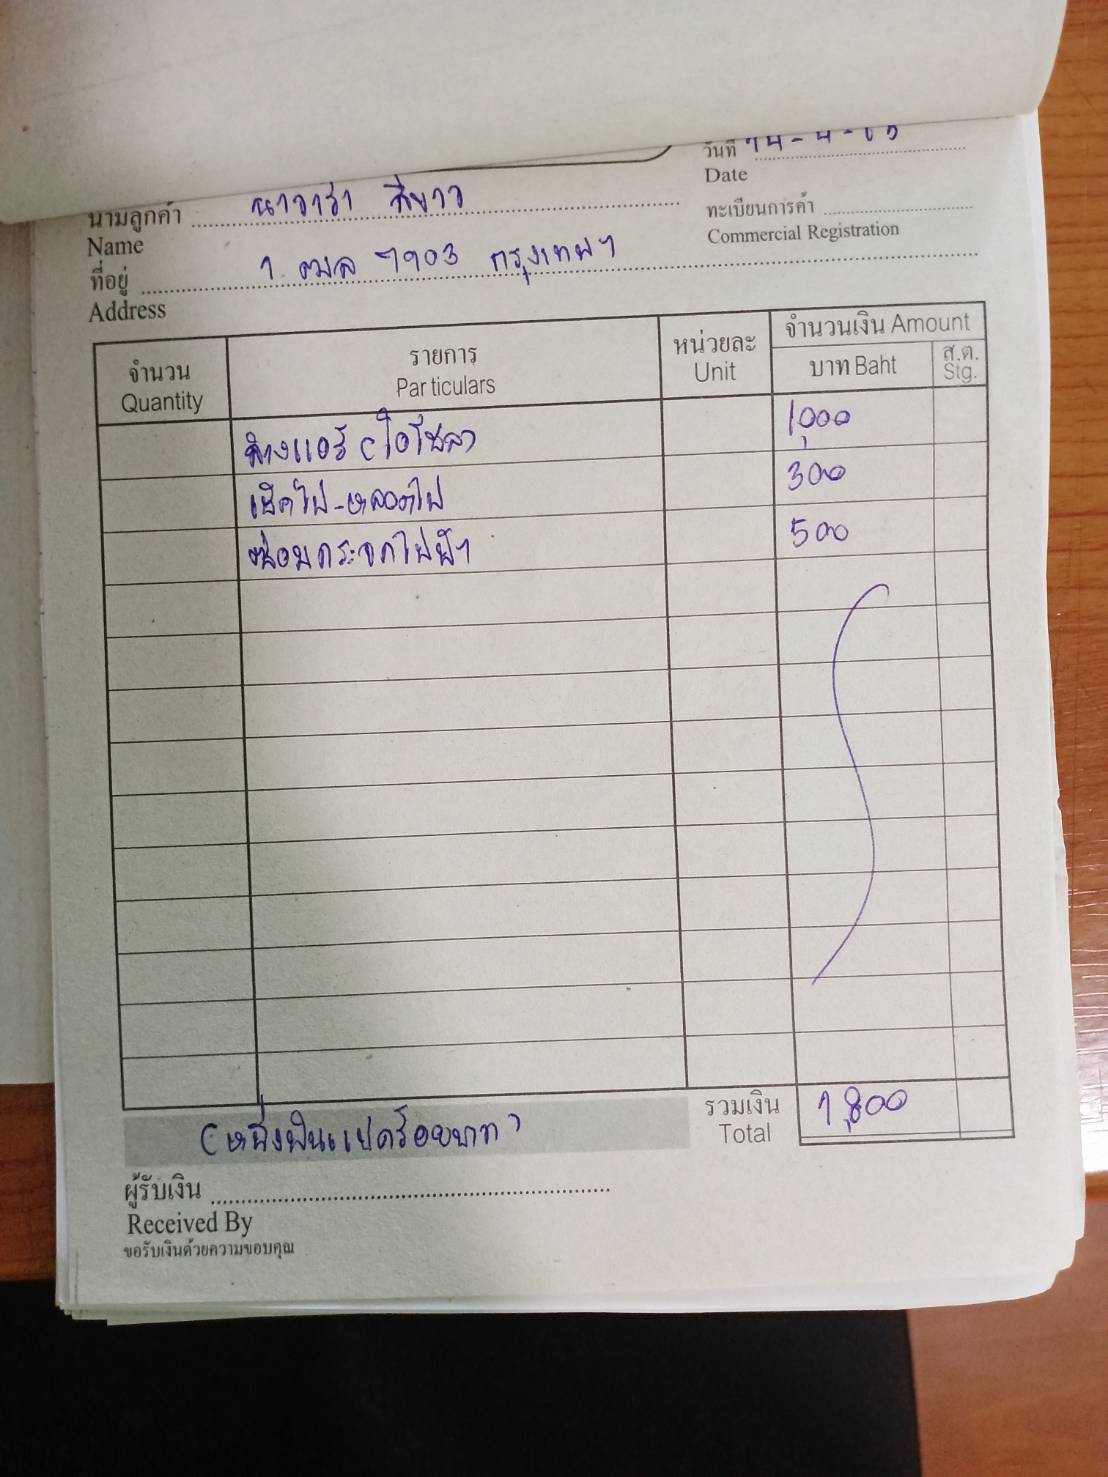 วันที่ 14-4-65
Date
นามลูกค้า นาวาร่า สีขาว
Name
ทะเบียนการค้า
Commercial Registration
ที่อยู่ 1 ฒล 7903 กรุงเทพฯ
Address
จำนวน Quantity รายการ Particulars หน่วยละ Unit จำนวนเงิน Amount
บาท Baht ส.ต. Stg.
ล้างแอร์ 1,000
เช็คไฟ-หลอดไฟ 300
ซ่อมกระจกไฟฟ้า 500
(หนึ่งพันแปดร้อยบาท) รวมเงิน 1,800
Total
ผู้รับเงิน
Received By
ขอรับเงินด้วยความขอบคุณ